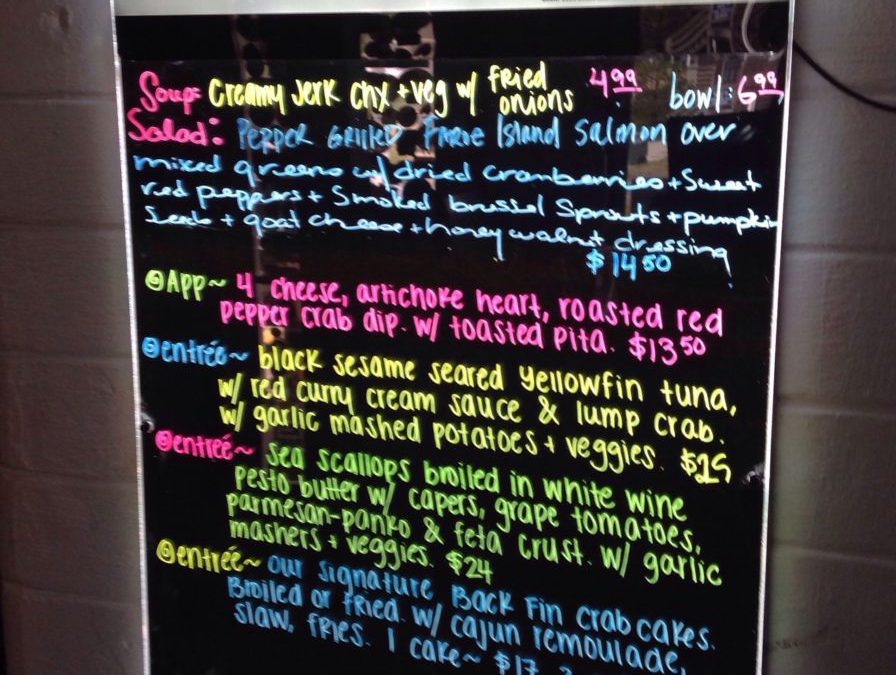 Soup: Creamy Jerk chx + veg w/ fried onions 4.99 bowl: 6.99
Salad: Pepper Grilled Faroe Island Salmon over
mixed greens w/ dried cranberries + Sweet
red peppers + Smoked brussel Sprouts + pumpkin
Seeds + goat cheese + honey walnut dressing
$14.50
App~ 4 cheese, artichoke heart, roasted red
pepper crab dip. w/ toasted pita. $13.50
entrée~ black sesame seared yellowfin tuna,
w/ red curry cream sauce & lump crab.
w/ garlic mashed potatoes + veggies. $25
entreé~ sea scallops broiled in white wine
pesto butter w/ capers, grape tomatoes,
parmesan-panko & feta crust. w/ garlic
mashers + veggies. $24
entrée~ our signature Back Fin crab cakes.
Broiled or fried. w/ cajun remoulade,
slaw, fries. 1 cake~ $17